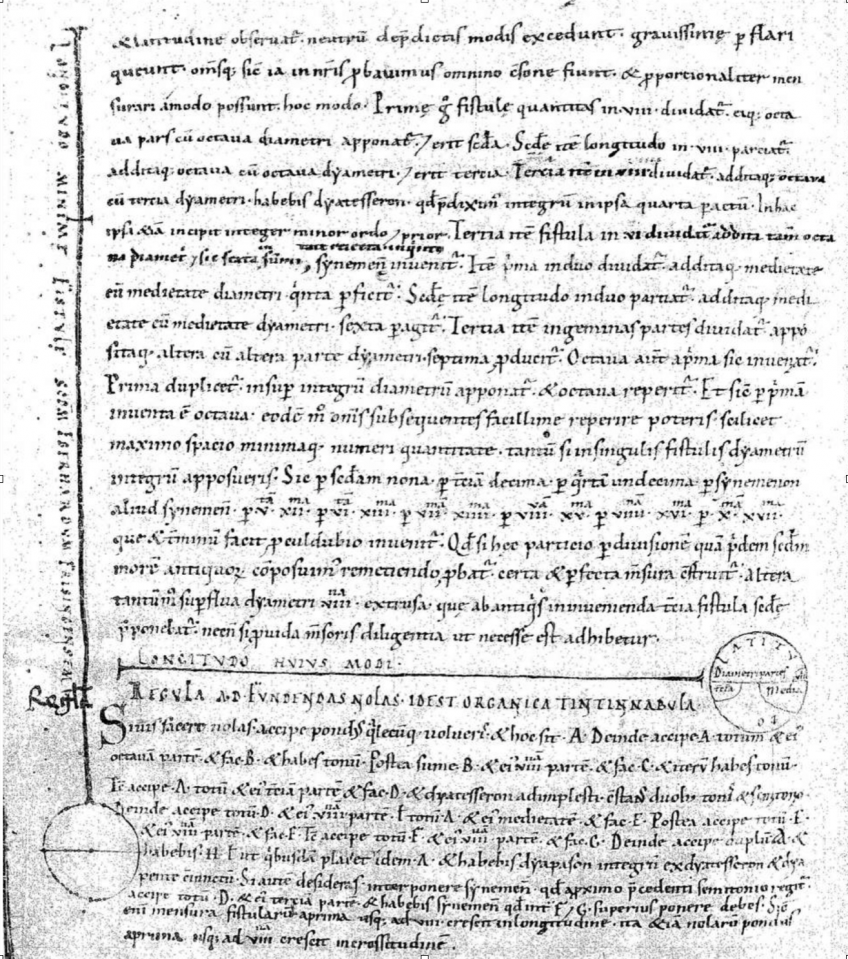 &latitudine observat̄. neutrū dep̄dictis modis excedunt. gravissimę p flari
queunt. om̄sq; sic̄ ia in nr̄is p̄bavimus omnino c̄sone fiunt. & p̱portionaliter men
surari ámodo possunt. hoc modo. Primę g̊ fistulę quantitas in .viii. dividat̄. eiq; octa
va pars cū octava diametri apponat̄. / erit sc̄da. Sc̄dę itē longitudo in .viii. parciat̄.
additaq; octava cū octava dyametri. / erit tercia. Tercia itē in viiii dividat̄. additaq; octava
cū tercia dyametri. habebis dyatesseron. qd̄ p̄diximꝰ integrū in ipsa quarta pactū. In hac
ipsa &iā incipit integer minor ordo / prior. Tertia itē fistula in vi dividat̄ addita tam̄ octa
va diamet̄ / sic sumi, synemen̄ invenit̄. Itē p̄ma in duo dividat̄. additaq; medietate
cū medietate diametri. q̊nta pficit̄. Sc̄dę itē longitudo in duo partiat̄. additaq; medi
etate cū medietate dyametri. sexta pagit̄. Tertia itē in geminas partes dividat̄. appo
sitaq; altera cū altera parte dyametri. septima p̱ducit̄. Octava aut̄ a p̄ma sic inveniat̄.
Prima duplicet̄. insup integrū diametrū apponat̄. & octava reperit̄. Et sic̄ p p̄mā
inventa ē octava. eodē m̊ om̄s subsequentes facillime reperire poteris. scilicet
maximo spacio minimaq; numeri quantitate. tantū si in singulis fistulis dyametrū
integrū apposueris. Sic p sc̄dam nona. p t̄ciā decima. p q̊rtā undecima. p synemenon
aliud synemen̄. p v̄ᵗᵃ. xii.ᵐᵃ p vi.ᵗᵃ xiii.ᵐᵃ p vii.ᵐᵃ xiiii.ᵐᵃ p viii.ᵛᵃ xv.ᵐᵃ p viiii.ᵐᵃ xvi.ᵐᵃ p x.ᵐᵃ xvii.ᵐᵃ
que & t̄minū facit, p̱culdubio invenit̄. Qd̄ si hec particio p divisionē quā p̄dem sc̄dm
morē antiquoꝝ cōposuimꝰ remetiendo, p̱bat̄. certa & pfecta m̄sura c̄struit̄. altera
tantūm̊ supflua dyametri .xiii. extrusa. que ab antiq̊s in invenienda t̄cia fistula sedę
p̄ponebat̄. necn̄ si p̱vida m̄soris diligentia ut necesse est adhibetur.
LONGITUDO HUIUS MODI.
REGULA AD FUNDENDAS NOLAS. IDEST ORGANICA TINTINNABULA
Si vis facere nolas. accipe pondꝰ q̊lecūq; volueris. & hoc sit .A. Deinde accipe .A. totum & eiꝰ
octavā partē. & fac .B. & habes tonū. Postea sume .B. & eiꝰ viiiᵃ partē. & fac .C. & iterū habes tonū.
Tc̄ accipe .A. totū & eiꝰ t̄ciā partē & fac .D. & dyatesseron adimplesti. c̄stans duobꝰ tonis & semitono
Deinde accipe totū .D. & eiꝰ viiiᵃ parte. ł totū .A. & eiꝰ medietatē. & fac .E. Postea accipe totū .E.
& eiꝰ viii parte. & fac .F. Tc̄ accipe totū .F. & eiꝰ viiiᵃ partē. & fac .G. Deinde accipe duplū .A. &
habebis .H. ł ut q̊busdā placet idem .A. & habebis dyapason integrū ex dyatesseron & dya
pente c̄iunctū. Si autē desideras interponere synemen̄. qd̄ a p̱ximo p̄cedenti semitonio regit̄.
accipe totū .D. & eiꝰ terciā partē & habebis synemen̄ qd̄ int̄ F / G. superius ponere debes. Sic̄
eni mensura fistularū a prima usq; ad viii crescit in longitudine. ita &iā nolarū pondus
a prima usq; ad viiiᵃ crescit in crossitudine.
LONGITUDO MINIMĘ FISTULĘ SECDM EBERHARDUM FRISINGENSEM
Regula
LATITUDO
Diametri pars
tcia
Media